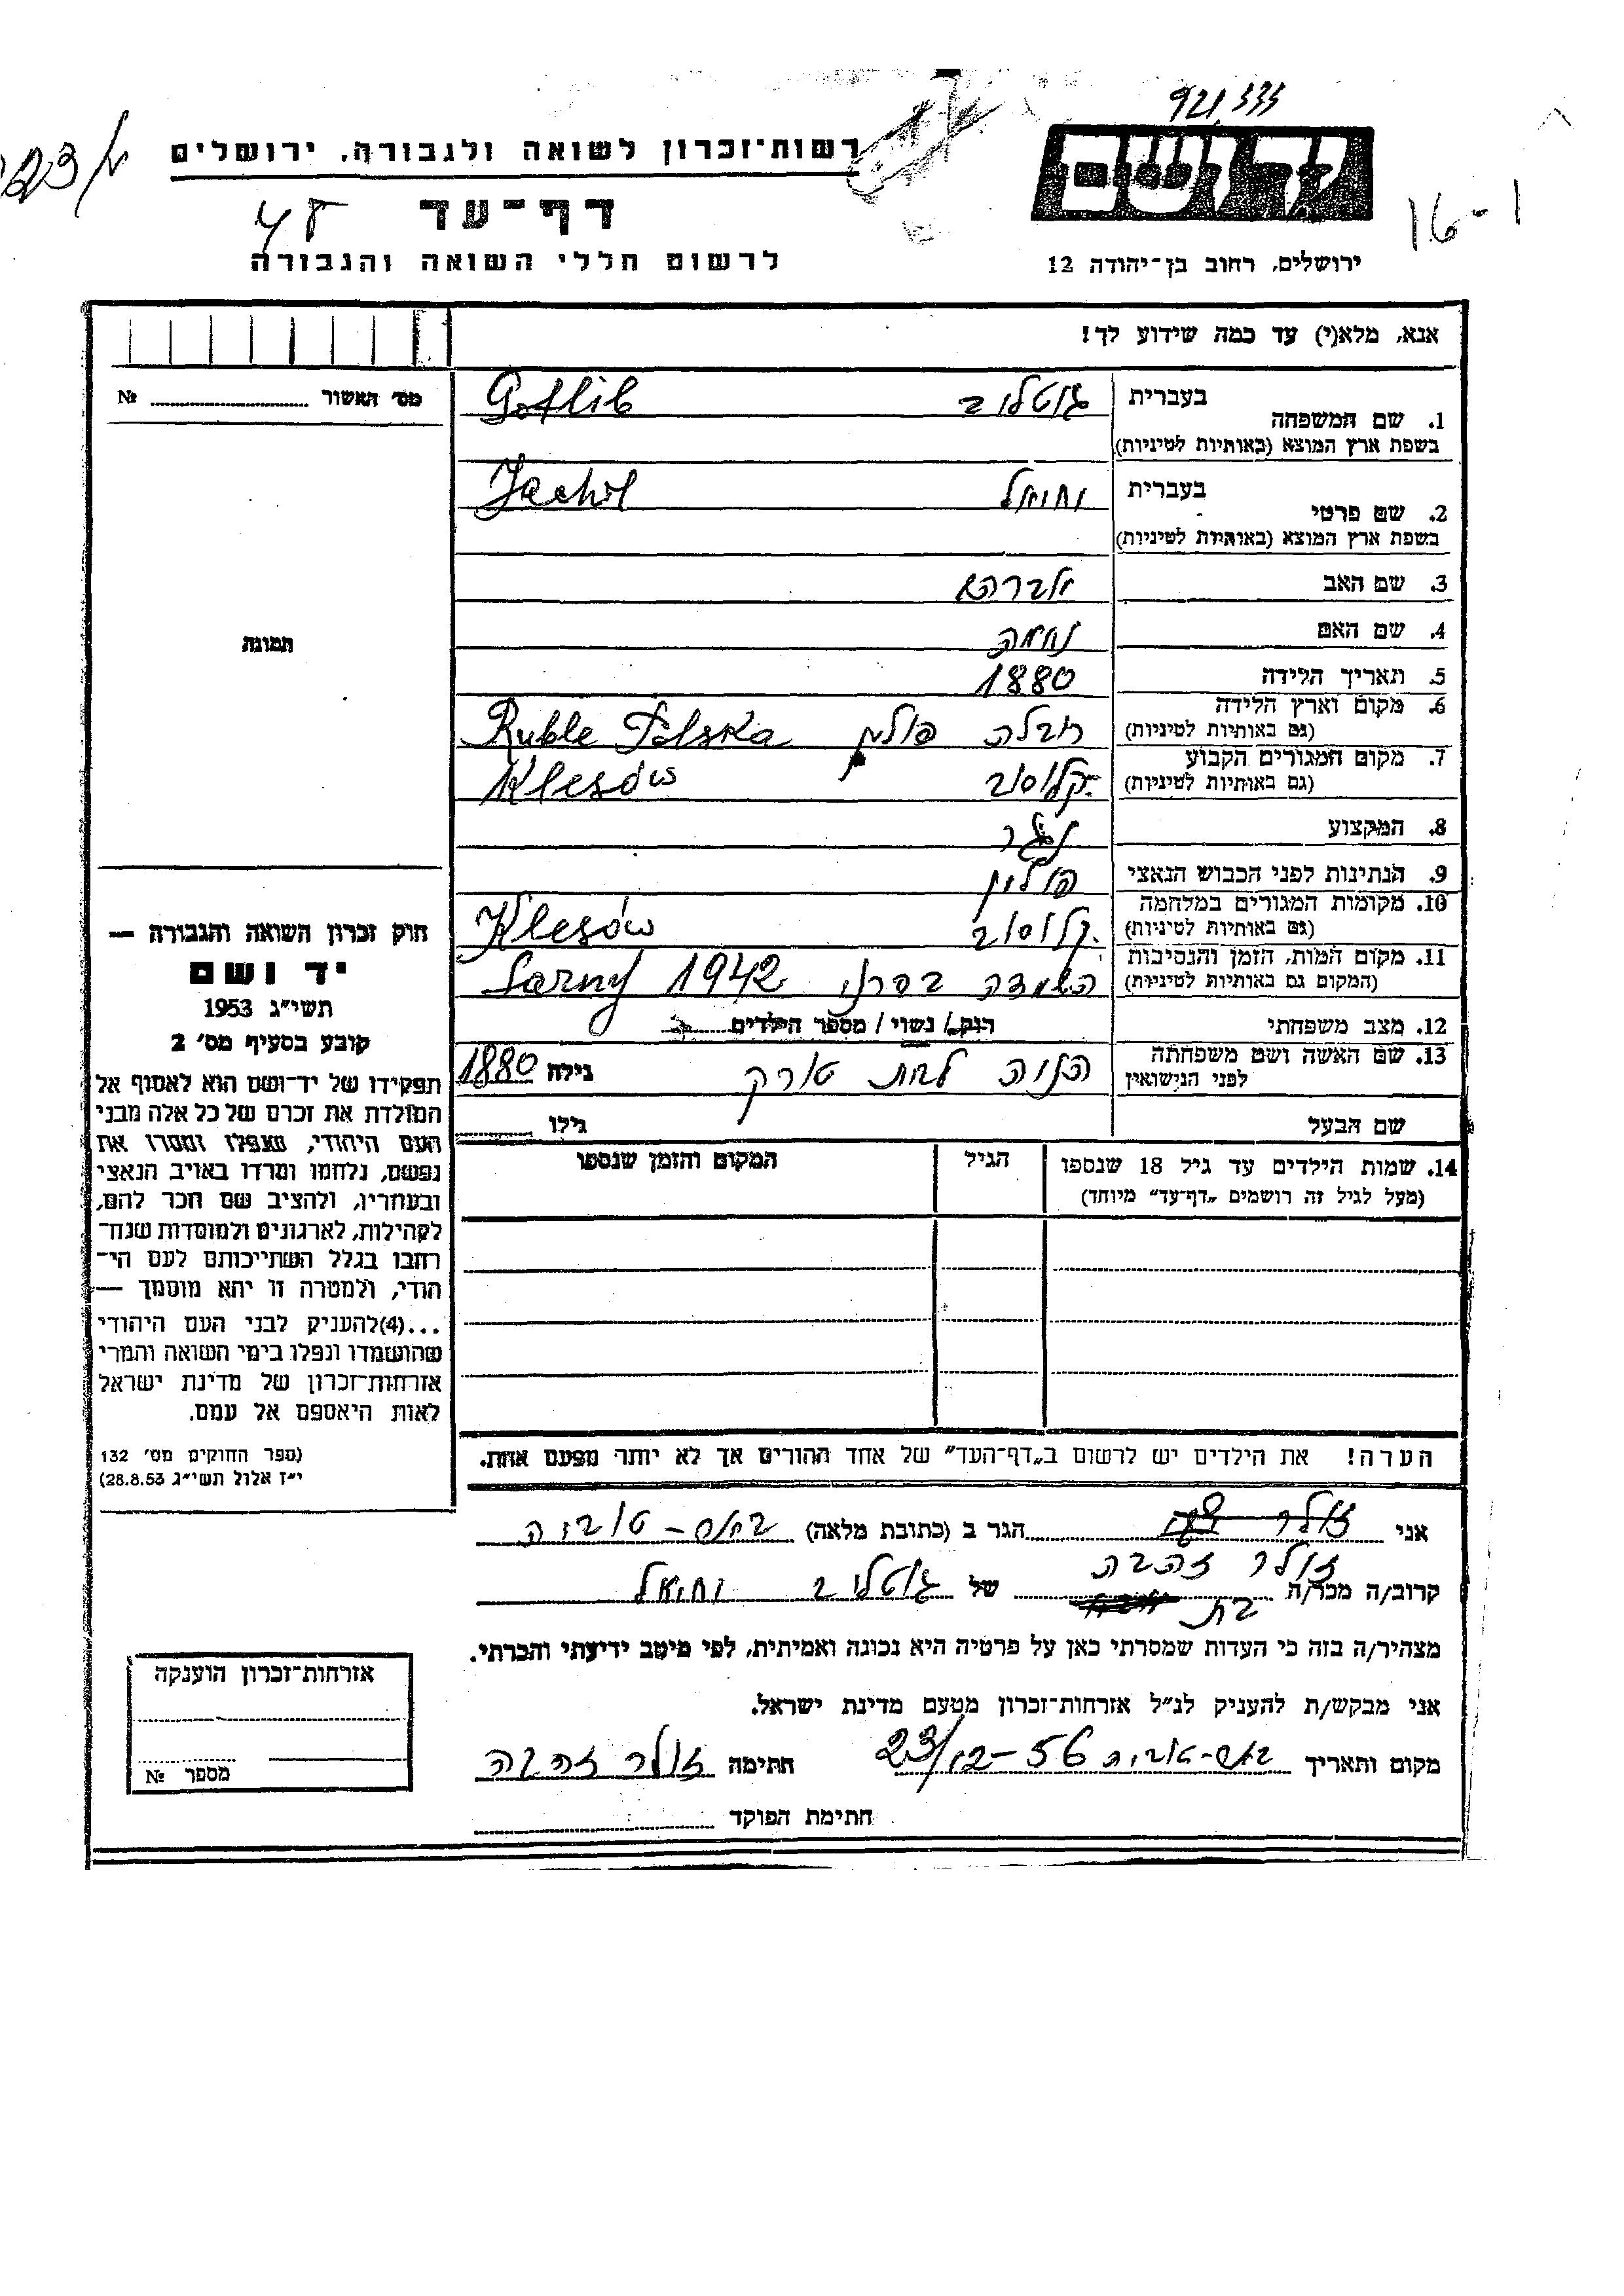 921,333
רשות־זכרון לשואה ולגבורה, ירושלים
יד ושם
16-1
דף־עד
לרשום חללי השואה והגבורה
ירושלים, רחוב בן־יהודה 12
אנא, מלא(י) עד כמה שידוע לך!
מס׳ האשור № ........
1. שם המשפחה בעברית גוטליב Gotlib
בשפת ארץ המוצא (באותיות לטיניות)
2. שם פרטי בעברית יחיאל Jachil
בשפת ארץ המוצא (באותיות לטיניות)
3. שם האב אברהם
4. שם האם נחמה
5. תאריך הלידה 1880
6. מקום וארץ הלידה רובלה פולין Ruble Polska
(גם באותיות לטיניות)
7. מקום המגורים הקבוע קלוסוב Klesów
(גם באותיות לטיניות)
8. המקצוע נגר
9. הנתינות לפני הכבוש הנאצי פולין
10. מקומות המגורים במלחמה קלוסוב Klesów
(גם באותיות לטיניות)
11. מקום המות, הזמן והנסיבות השמדה בסרני 1942 Sarny
(המקום גם באותיות לטיניות)
12. מצב משפחתי רווק / נשוי / מספר הילדים
13. שם האשה ושם משפחתה לבית גילה 1880
לפני הנישואין
שם הבעל גילו
14. שמות הילדים עד גיל 18 שנספו הגיל המקום והזמן שנספו
(מעל לגיל זה רושמים „דף־עד” מיוחד)
הערה! את הילדים יש לרשום ב„דף־העד” של אחד ההורים אך לא יותר מפעם אחת.
תמונה
חוק זכרון השואה והגבורה —
יד ושם
תשי״ג 1953
קובע בסעיף מס׳ 2
תפקידו של יד־ושם הוא לאסוף אל
המולדת את זכרם של כל אלה מבני
העם היהודי, שנפלו ומסרו את
נפשם, נלחמו ומרדו באויב הנאצי
ובעוזריו, ולהציב שם וזכר להם,
לקהילות, לארגונים ולמוסדות שנח־
רבו בגלל השתייכותם לעם הי־
הודי, ולמטרה זו יהא מוסמך —
...(4)להעניק לבני העם היהודי
שהושמדו ונפלו בימי השואה והמרי
אזרחות־זכרון של מדינת ישראל
לאות היאספם אל עמם.
(ספר החוקים מס׳ 132
י״ז אלול תשי״ג 28.8.53)
אני זולר הגר ב (כתובת מלאה) באר-טוביה
זולר זהבה
קרוב/ה מכר/ה בת של גוטליב יחיאל
מצהיר/ה בזה כי העדות שמסרתי כאן על פרטיה היא נכונה ואמיתית, לפי מיטב ידיעתי והכרתי.
אני מבקש/ת להעניק לנ״ל אזרחות־זכרון מטעם מדינת ישראל.
מקום ותאריך באר-טוביה 23/12-56 חתימה זולר זהבה
חתימת הפוקד
אזרחות־זכרון הוענקה
מספר №